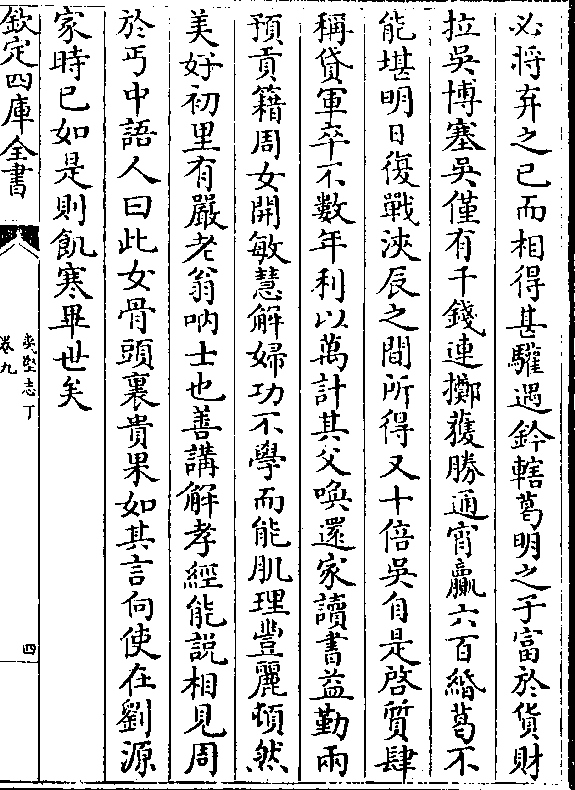 必將弃之已而相得甚驩遇鈐轄葛明之子富於貨財
拉吳博塞吳僅有千錢連擲獲勝通宵贏六百緡葛不
能堪明日復戰浹辰之間所得又十倍吳自是啓質肆
稱貸軍卒不數年利以萬計其父喚還家讀書益勤兩
預貢籍周女開敏慧解婦功不學而能肌理豐麗頓然
美好初里有嚴老翁吶士也善講解孝經能說相見周
於丐中語人曰此女骨頭裏貴果如其言向使在劉源
家時已如是則飢寒畢世矣
欽定四庫全書
夷堅志丁
卷九
四